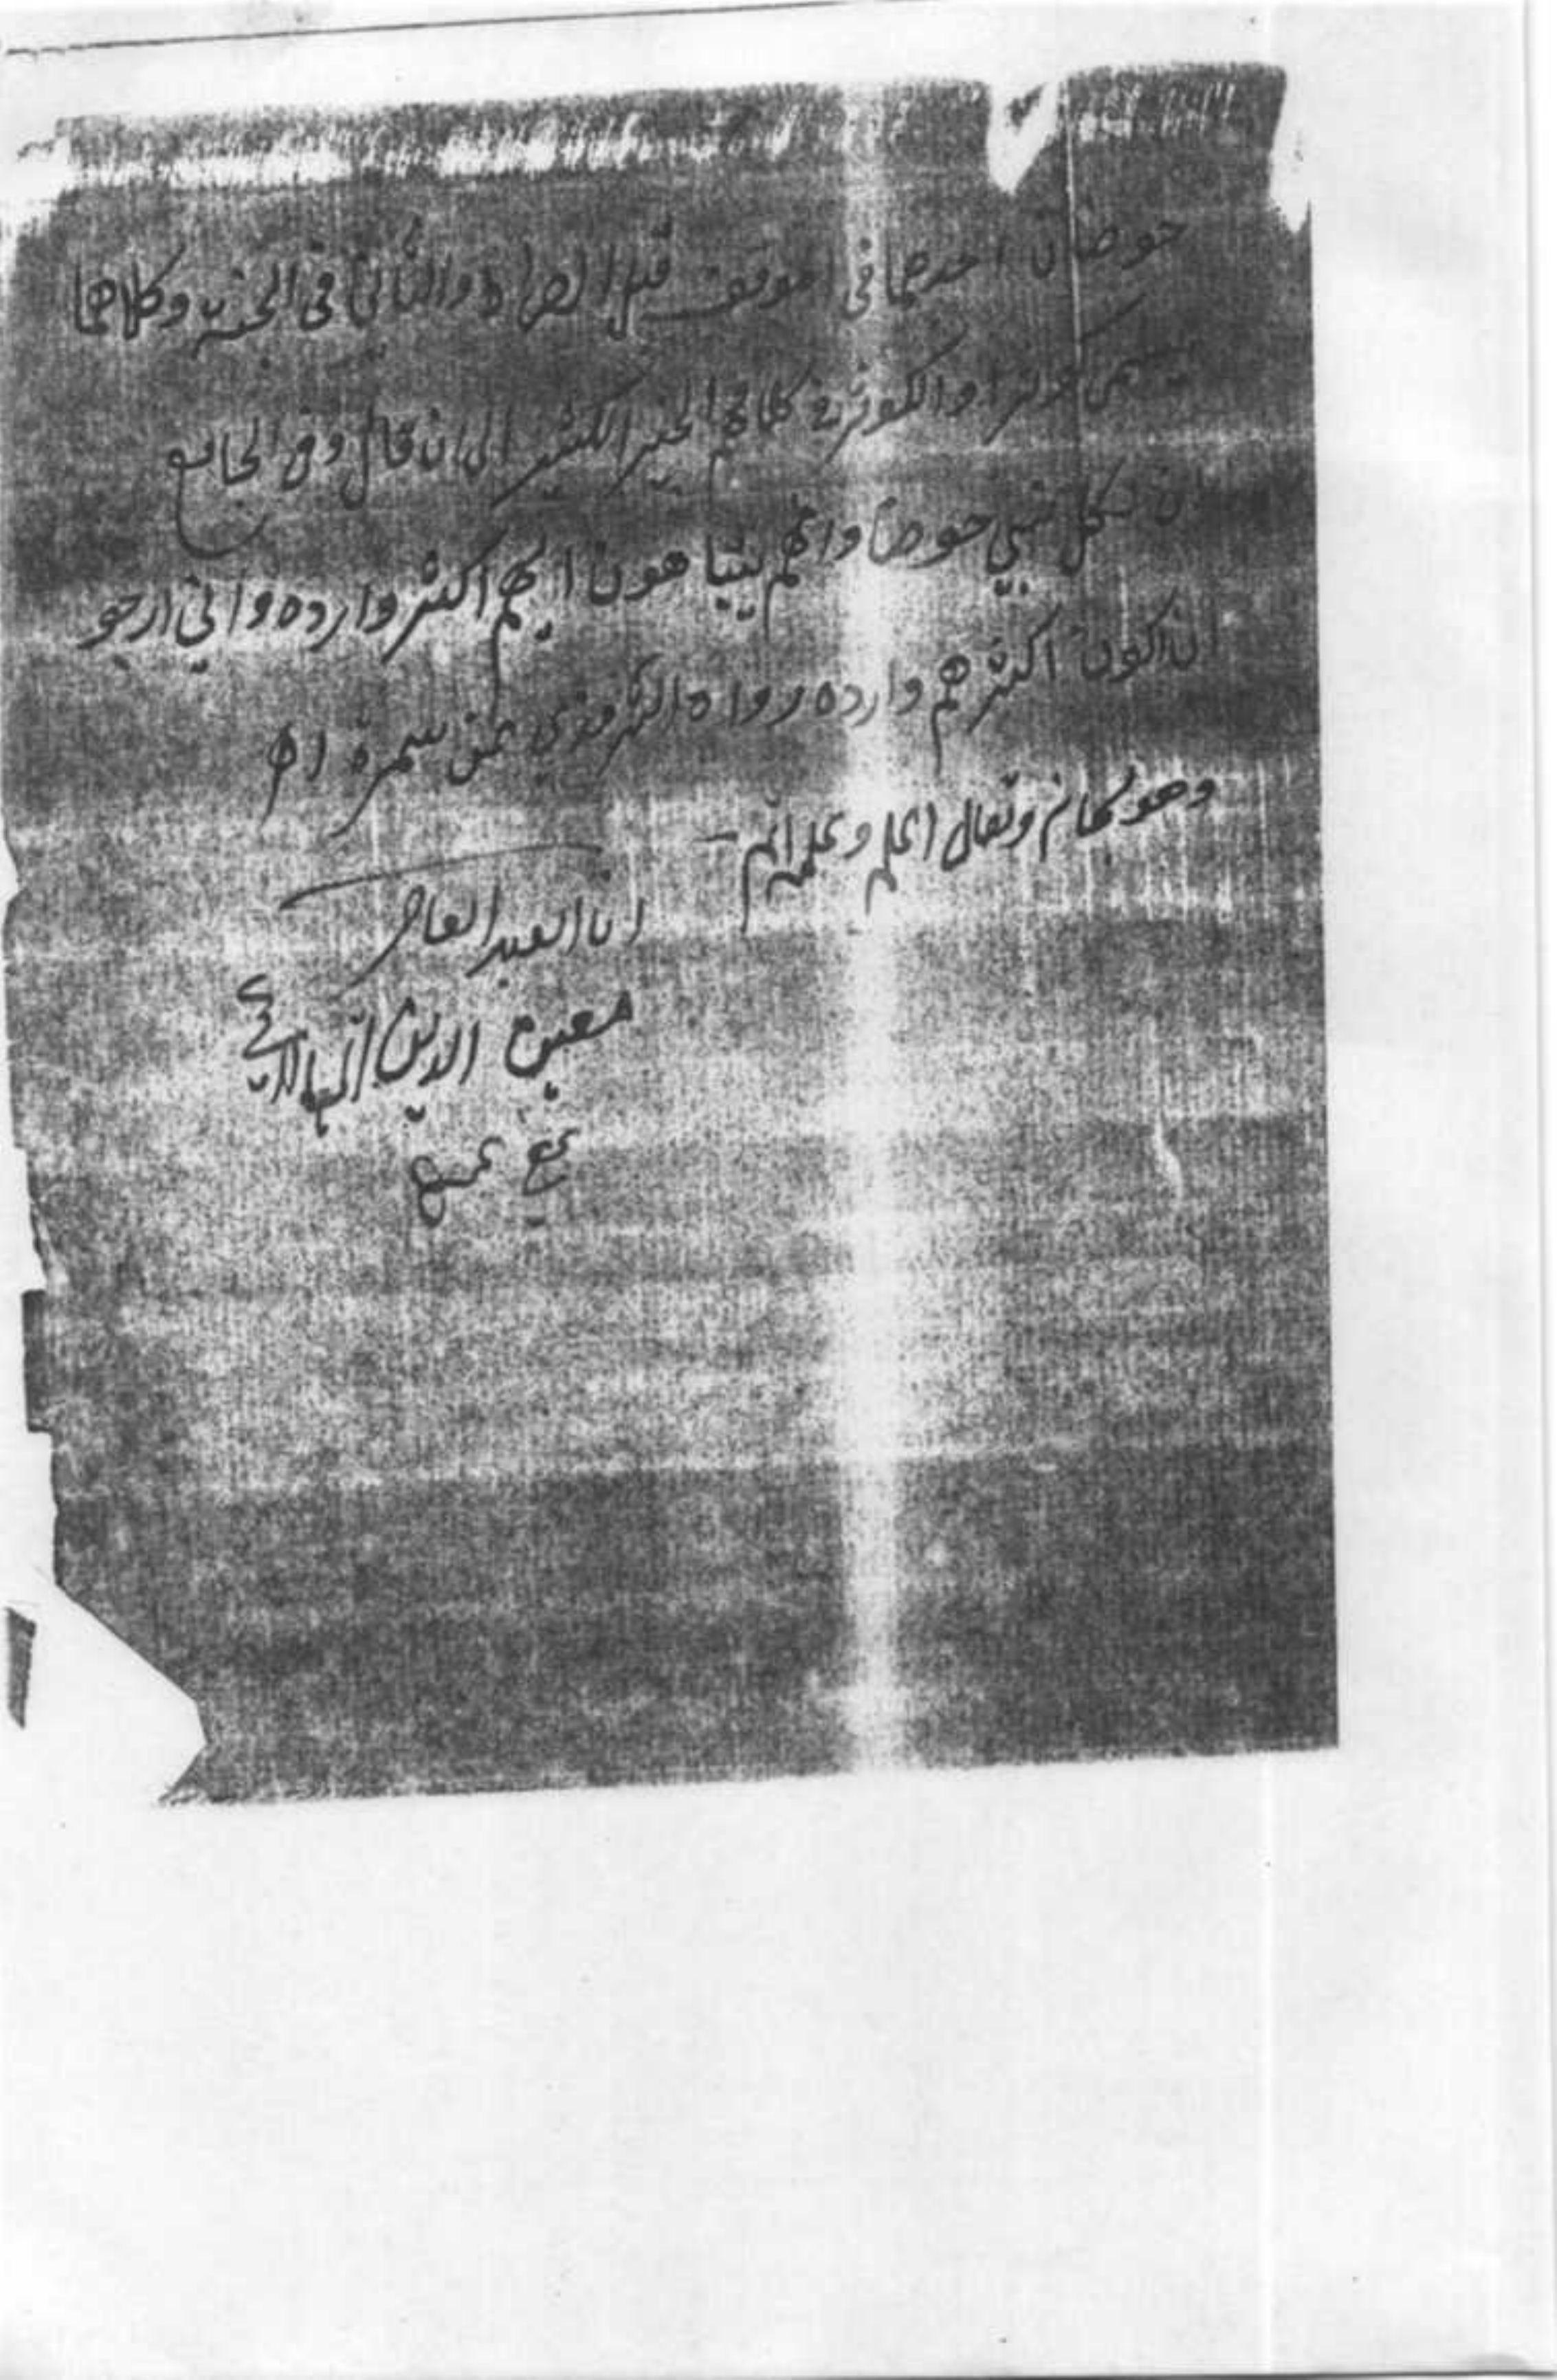 حوضان احدهما في الموقف قبل الصراط والثاني في الجنة وكلاهما
يسمى كوثرا والكوثر في كلامهم الخير الكثير الى ان قال وفي الجامع
ان لكل نبي حوضا وانهم يتباهون ايهم اكثر وارده واني ارجو
ان اكون اكثرهم وارده رواه الترمذي عن سمرة اه
وهو سبحانه وتعالى اعلم وعلمه اتم
انا العبد العاصي
معين الدين
عفي عنه